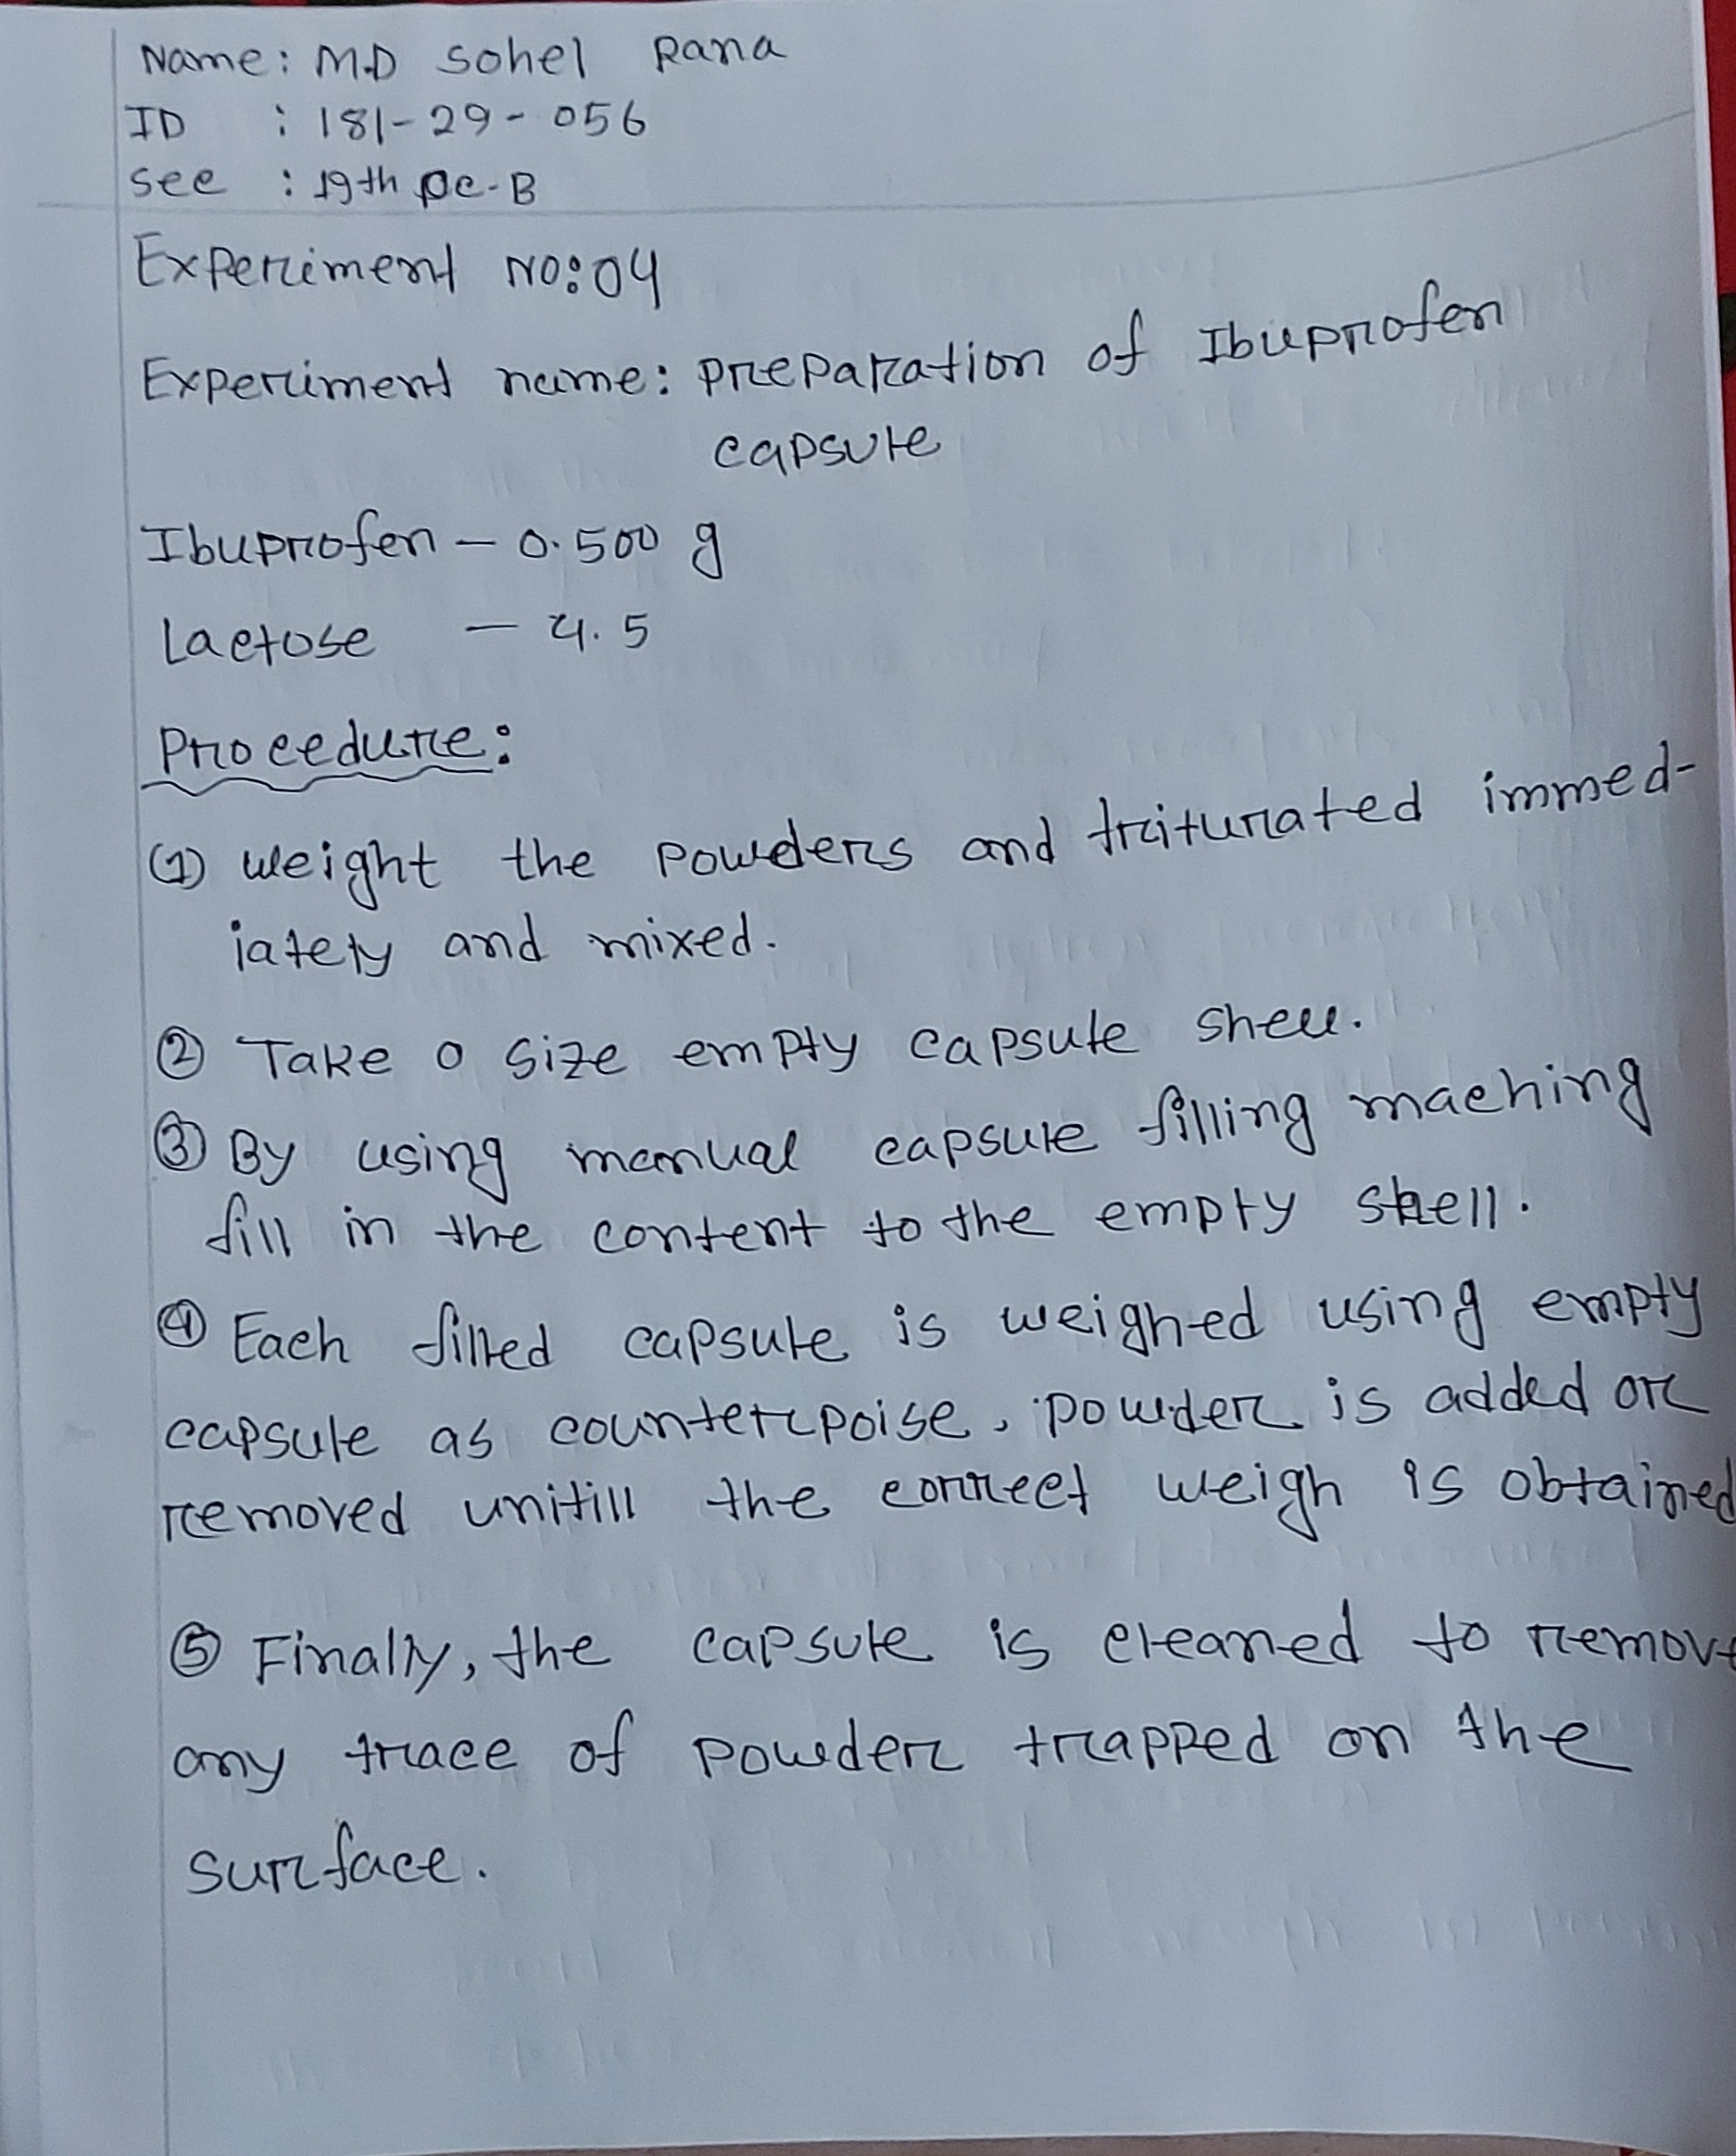 Name: M.D Sohel Rana
ID : 181-29-056
Sec : 19th PC-B
Experiment NO: 04
Experiment name: Preparation of Ibuprofen
capsule
Ibuprofen - 0.500 g
Lactose - 4.5
Procedure:
(1) Weight the powders and triturated immed-
iately and mixed.
(2) Take 0 size empty capsule shell.
(3) By using manual capsule filling maching
fill in the content to the empty shell.
(4) Each filled capsule is weighed using empty
capsule as counterpoise, powder is added or
removed unitill the correct weigh is obtained
(5) Finally, the capsule is cleaned to remove
any trace of powder trapped on the
surface.